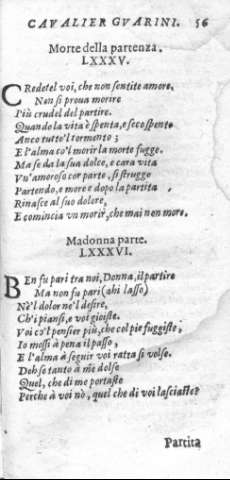 CAVALIER GVARINI. 56
Morte della partenza.
LXXXV.
CRedetel voi, che non sentite amore.
Non si proua morire
Più crudel del partire.
Quando la vita è spenta, e seco spento
Anco tutto'l tormento;
E l'alma co'l morir la morte fugge.
Ma se da la sua dolce, e cara vita
Vn'amoroso cor parte, si strugge
Partendo, e more e dopo la partita,
Rinasce al suo dolore,
E comincia vn morir, che mai non more.
Madonna parte.
LXXXVI.
BEn fu pari tra noi, Donna, il partire
Ma non fu pari (ahi lasso)
Nè'l dolor ne'l desire,
Ch'i piansi, e voi gioiste.
Voi co'l pensier più, che col piè fuggiste;
Io mossi à pena il passo,
E l'alma à seguir voi ratta si volse.
Deh se tanto à me dolse
Quel, che di me portaste
Perche à voi nò, quel che di voi lasciaste?
Partita